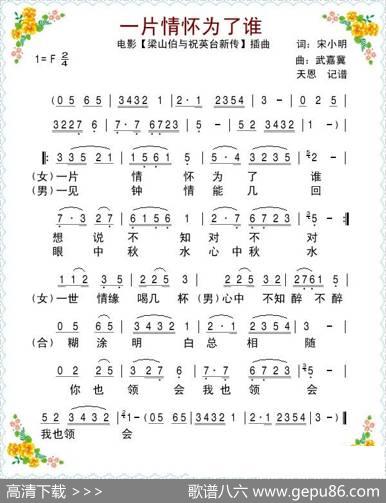 一片情怀为了谁
电影【梁山伯与祝英台新传】插曲 词：宋小明
1=F 2/4 曲：武嘉冀
天恩 记谱
(0 5 6 5 | 3 4 3 2 1 | 2· 1 2 3 5 4 | 3 - |
3 2 2 7 6 | 7· 7 6 7 2 3 | 5 - | 5 - ) |
‖: 3 3 5 2 1 | 1 5 6 1 | 5 5· | 5· 4 3 2 3 5 | 5 2 - |
(女)一片 情 怀 为 了 谁
(男)一见 钟 情 能 几 回
7· 3 2 7 | 6 1 5 6 | 2 0· 7 | 6 7 2 3 | 5 - :‖
想 说 不 知 对 不 对
眼 中 秋 水 心 中 秋 水
1 1 2 3 5 | 2 2 5 3 | 3· 5 6 6 5 3 | 2 7 6 1 5 |
(女)一世 情缘 喝几 杯 (男)心中 不知 醉 不 醉
(合) 糊 涂 明 白 总 相 随
你 也 领 会 我 也 领 会
5 2 3 4 3 2 | 1 - (0 5 6 5 | 3 4 3 2 1 | 2· 1 2 3 5 4 | 3 - ) |
我也 领 会
高清下载 >>> 歌谱八六 www.gepu86.com